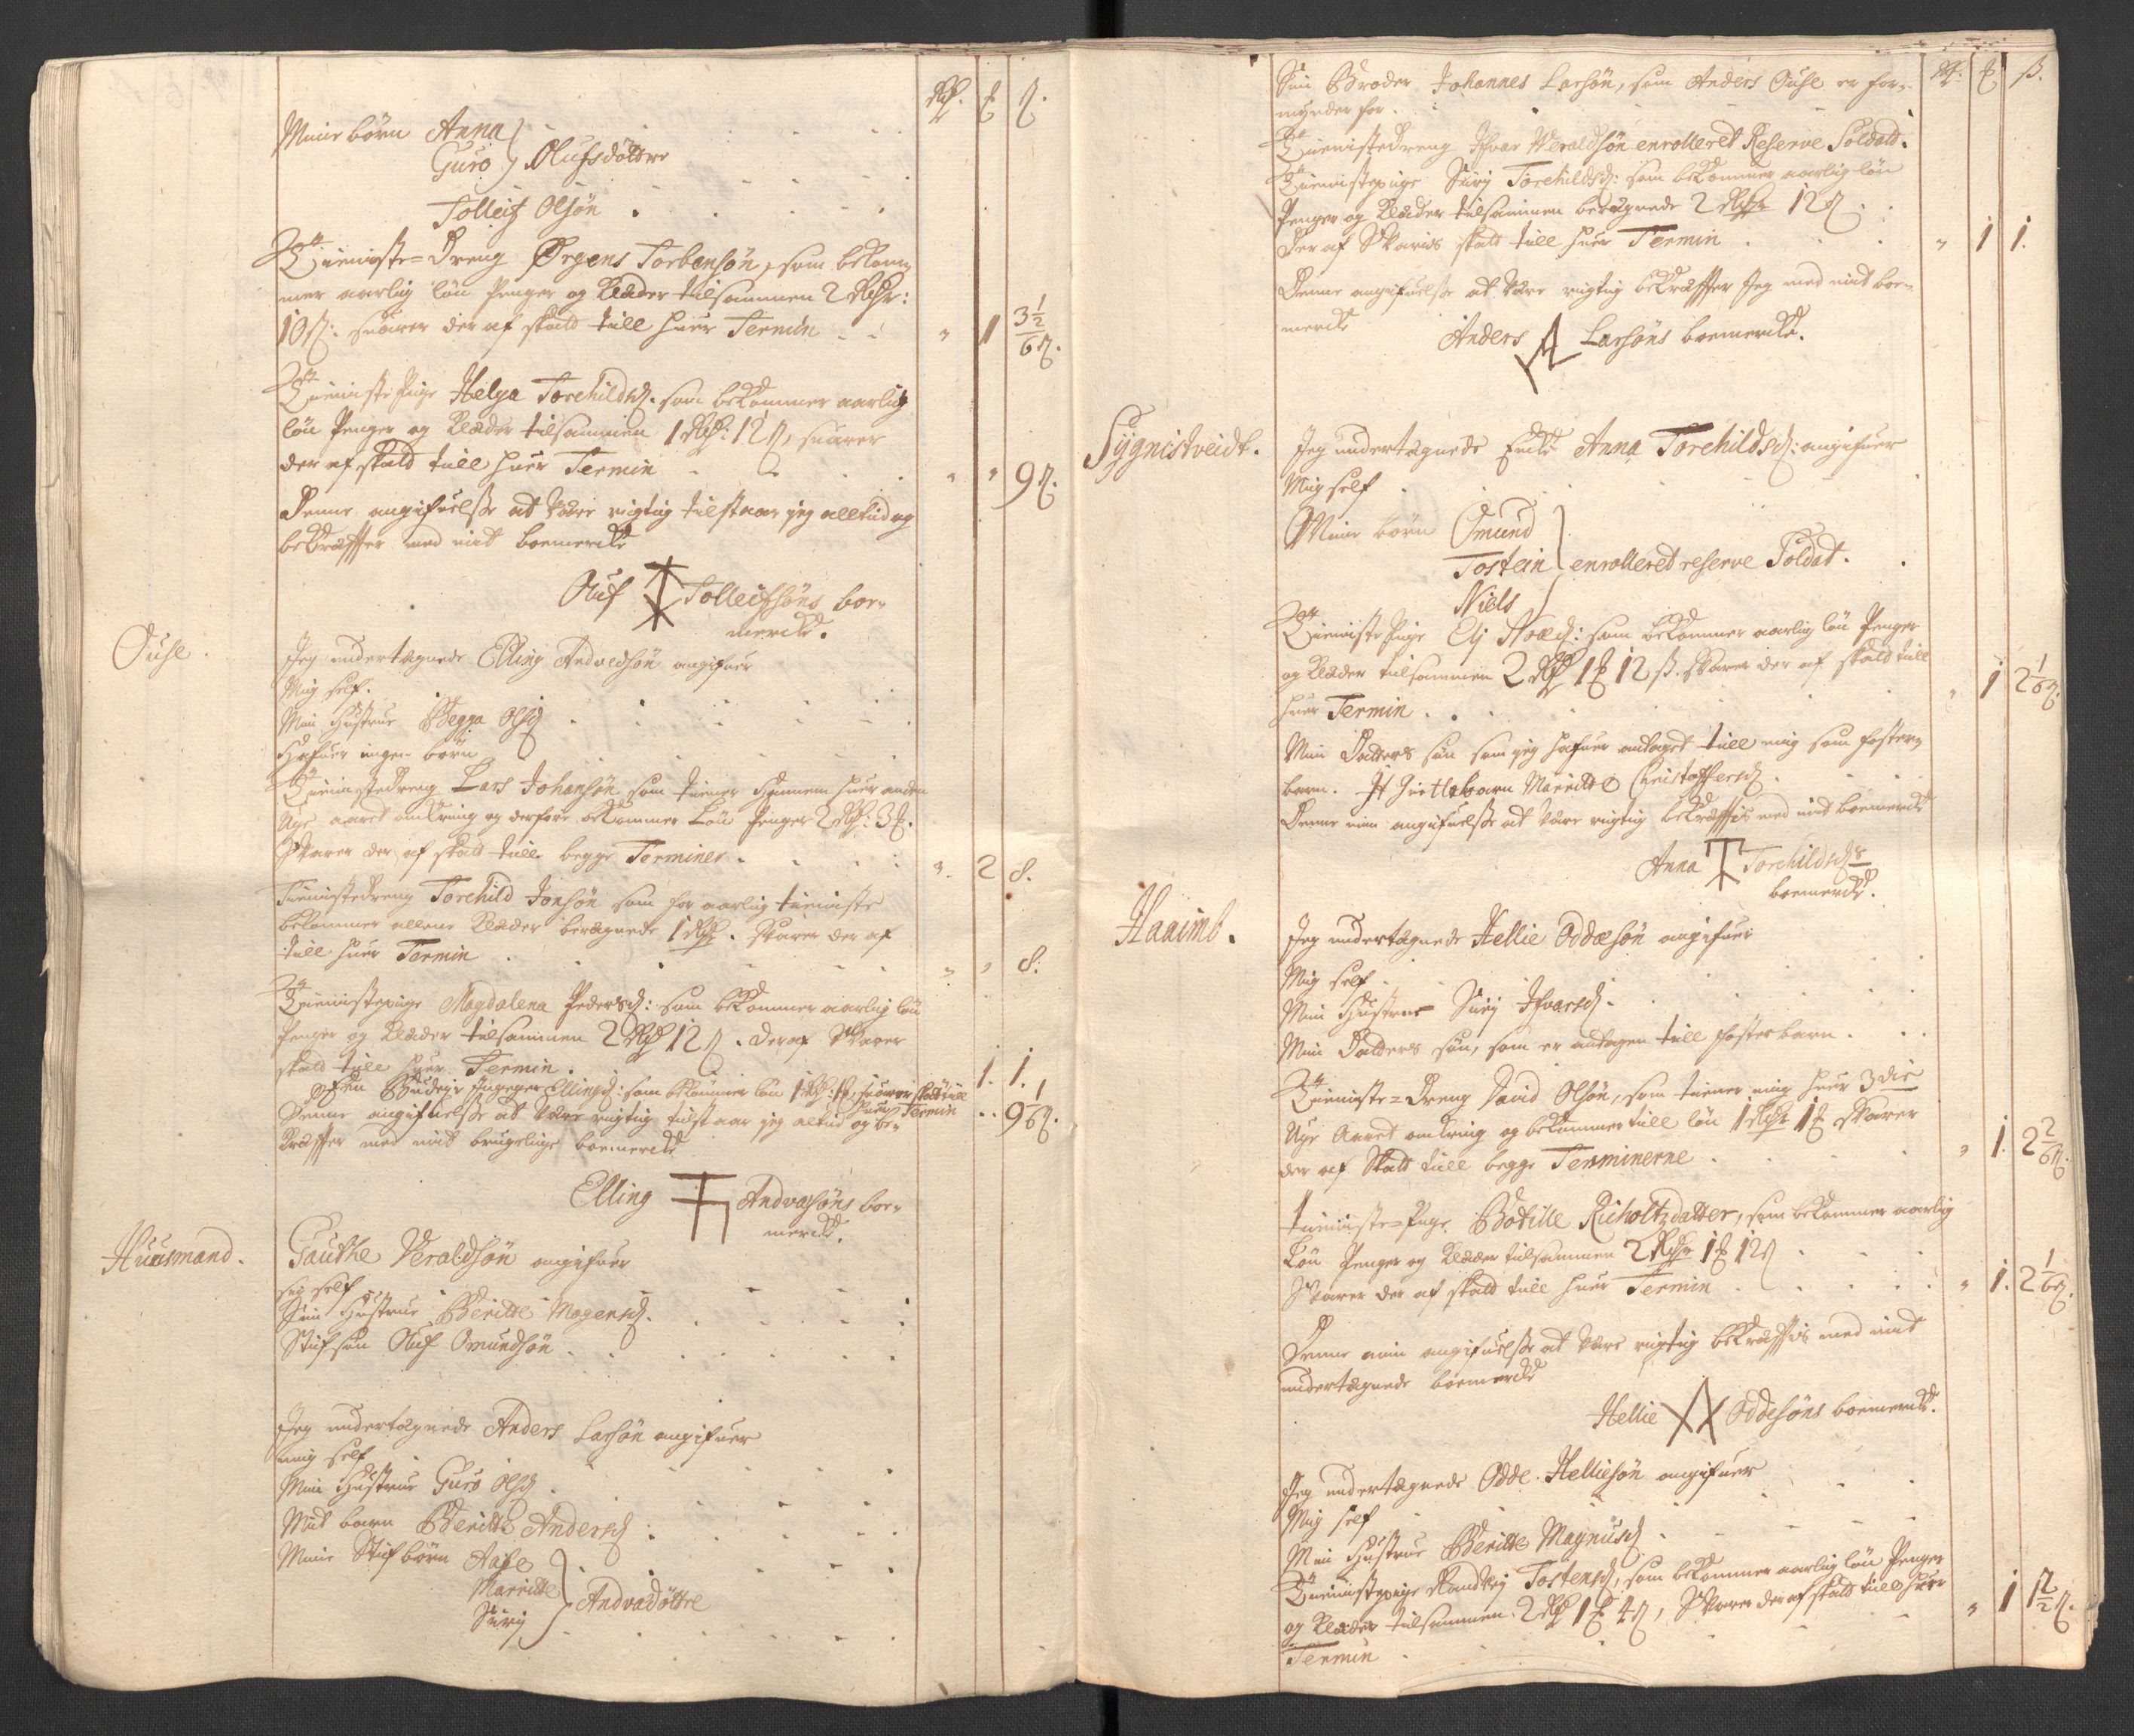 Rdr. ₰ ß.
Mine börn Anna
Guro } Olufsdöttre
Tolleif Olsön
Tieniste-Dreng Ørgens Torbensön, som bekom-
mer aarlig lön Penger og Klæder tilsammen 2 Rdr:
10 ß: svarer der af skatt till huer Termin „ 1 3 1/2 / 6 ß.
Tieniste Pige Helga Torchildsd. som bekommer aarlig
lön Penger og Klæder tilsammen 1 Rdr: 12 ß, suarer
der af skatt till huer Termin „ „ 9 ß.
Denne angifuelse at være rigtig tilstaar jeg alltid og
bekræffter med mit boemercke
Oluf Tolleifsöns boe-
mercke.
Ouse.
Jeg undertegnede Elling Andvedsön angifuer
Mig self.
Min Hustrue Begga Olsd
Hafuer ingen börn
Tienistedreng Lars Johansön som tiener hannem huer anden
Uge aaret omkring og derfore bekommer Lön Penger 2 Rdr: 3 ₰.
Svarer der af skatt till begge Terminer „ 2 8.
Tienistedreng Torchild Jonsön som for aarlig tieniste
bekommer allene Klæder beregnede 1 Rdr. svarer der af
till huer Termin „ „ 8.
Tienistepige Magdalena Pedersd: som bekommer aarlig lön
Penger og Klæder tilsammen 2 Rdr 12 ß. Deraf Svarer
skatt till huer Termin. 1. 1.
Een Budeje Ingeger Ellingsd: som bekommer lön 1 Rdr: 1 ₰, suarer skatt till
huer Termin „ 9 1/6 ß.
Denne angifuelse at være rigtig tilstaar jeg altid og be-
kræffter med mit brugelige boemercke
Elling Andvasöns boe-
mercke.
Huusmand.
Gauthe Veraldsön angifuer
sig self
Sin Hustrue Beritte Mogensd.
Stifsön Oluf Omundsön
Jeg undertegnede Anders Larsön angifuer
mig self
Min Hustrue Guro Olsd
Mit barn Beritte Andersd
Mine Stifbörn Aase
Marritte } Andvadöttre
Sirij
Rdr: ₰ ß.
Sin Broder Johannes Larsön, som Anders Ouse er for-
mynder for.
Tienistedreng Ifvar Veraldsön enrolleret Reserve Soldatt.
Tienistepige Sirij Torchildsd: som bekommer aarlig lön
Penger og Klæder tilsammen beregnede 2 Rdr 12 ß
Der af Svaris skatt till huer Termin „ 1 1.
Denne angifuelse at være rigtig bekræffter Jeg med mit boe-
mercke
Anders Larsöns boemercke.
Sygnistveidt.
Jeg undertegnede Encke Anna Torchildsd: angifuer
Mig self
Mine börn Omund
Tostein } enrolleret reserve Soldat.
Niels
Tieniste Pige Elj : som bekommer aarlig lön Penger
og Klæder tilsammen 2 Rdr 1 ₰ 12 ß. Svarer der af skatt till
huer Termin „ 1 2 1/6 ß.
Min Datters sön som jeg hafuer antaget till mig som foster-
barn. It barn Marritte Christoffersd
Denne min angifuelse at være rigtig bekræfftis med mit boemercke
Anna Torchildsd.s
boemercke.
Haaimb.
Jeg undertegnede Hellie Oddesön angifuer
Mig self
Min Hustrue Sirij Ifvarsd.
Min Datters sön, som er antagen till foster barn
Tieniste-Dreng David Olsön, som tiener mig huer 3die
Uge Aaret omkring og bekommer till lön 1 Rdr 1 ₰ svarer
der af Skatt till begge Terminerne „ 1. 2 2/6 ß.
Tieniste-Pige Botille Richoltzdatter, som bekommer aarlig
Lön Penger og Klæder tilsammen 2 Rdr 1 ₰ 12 ß
Svarer der af skatt till huer Termin „ 1. 2 1/6 ß.
Denne min angifuelse at være rigtig bekræfftis med mit
undertegnede boemercke
Hellie Oddesöns boemercke.
Jeg undertegnede Odde Helliesön angifuer
Mig self
Min Hustrue Beritte Magnusd
Tienistepige Randvej Tostensd, som bekommer aarlig lön Penger
og Klæder tilsammen 2 Rdr 1 ₰ 4 ß, Svarer der af skatt till huer
Termin „ 1 1 1/2 ß.